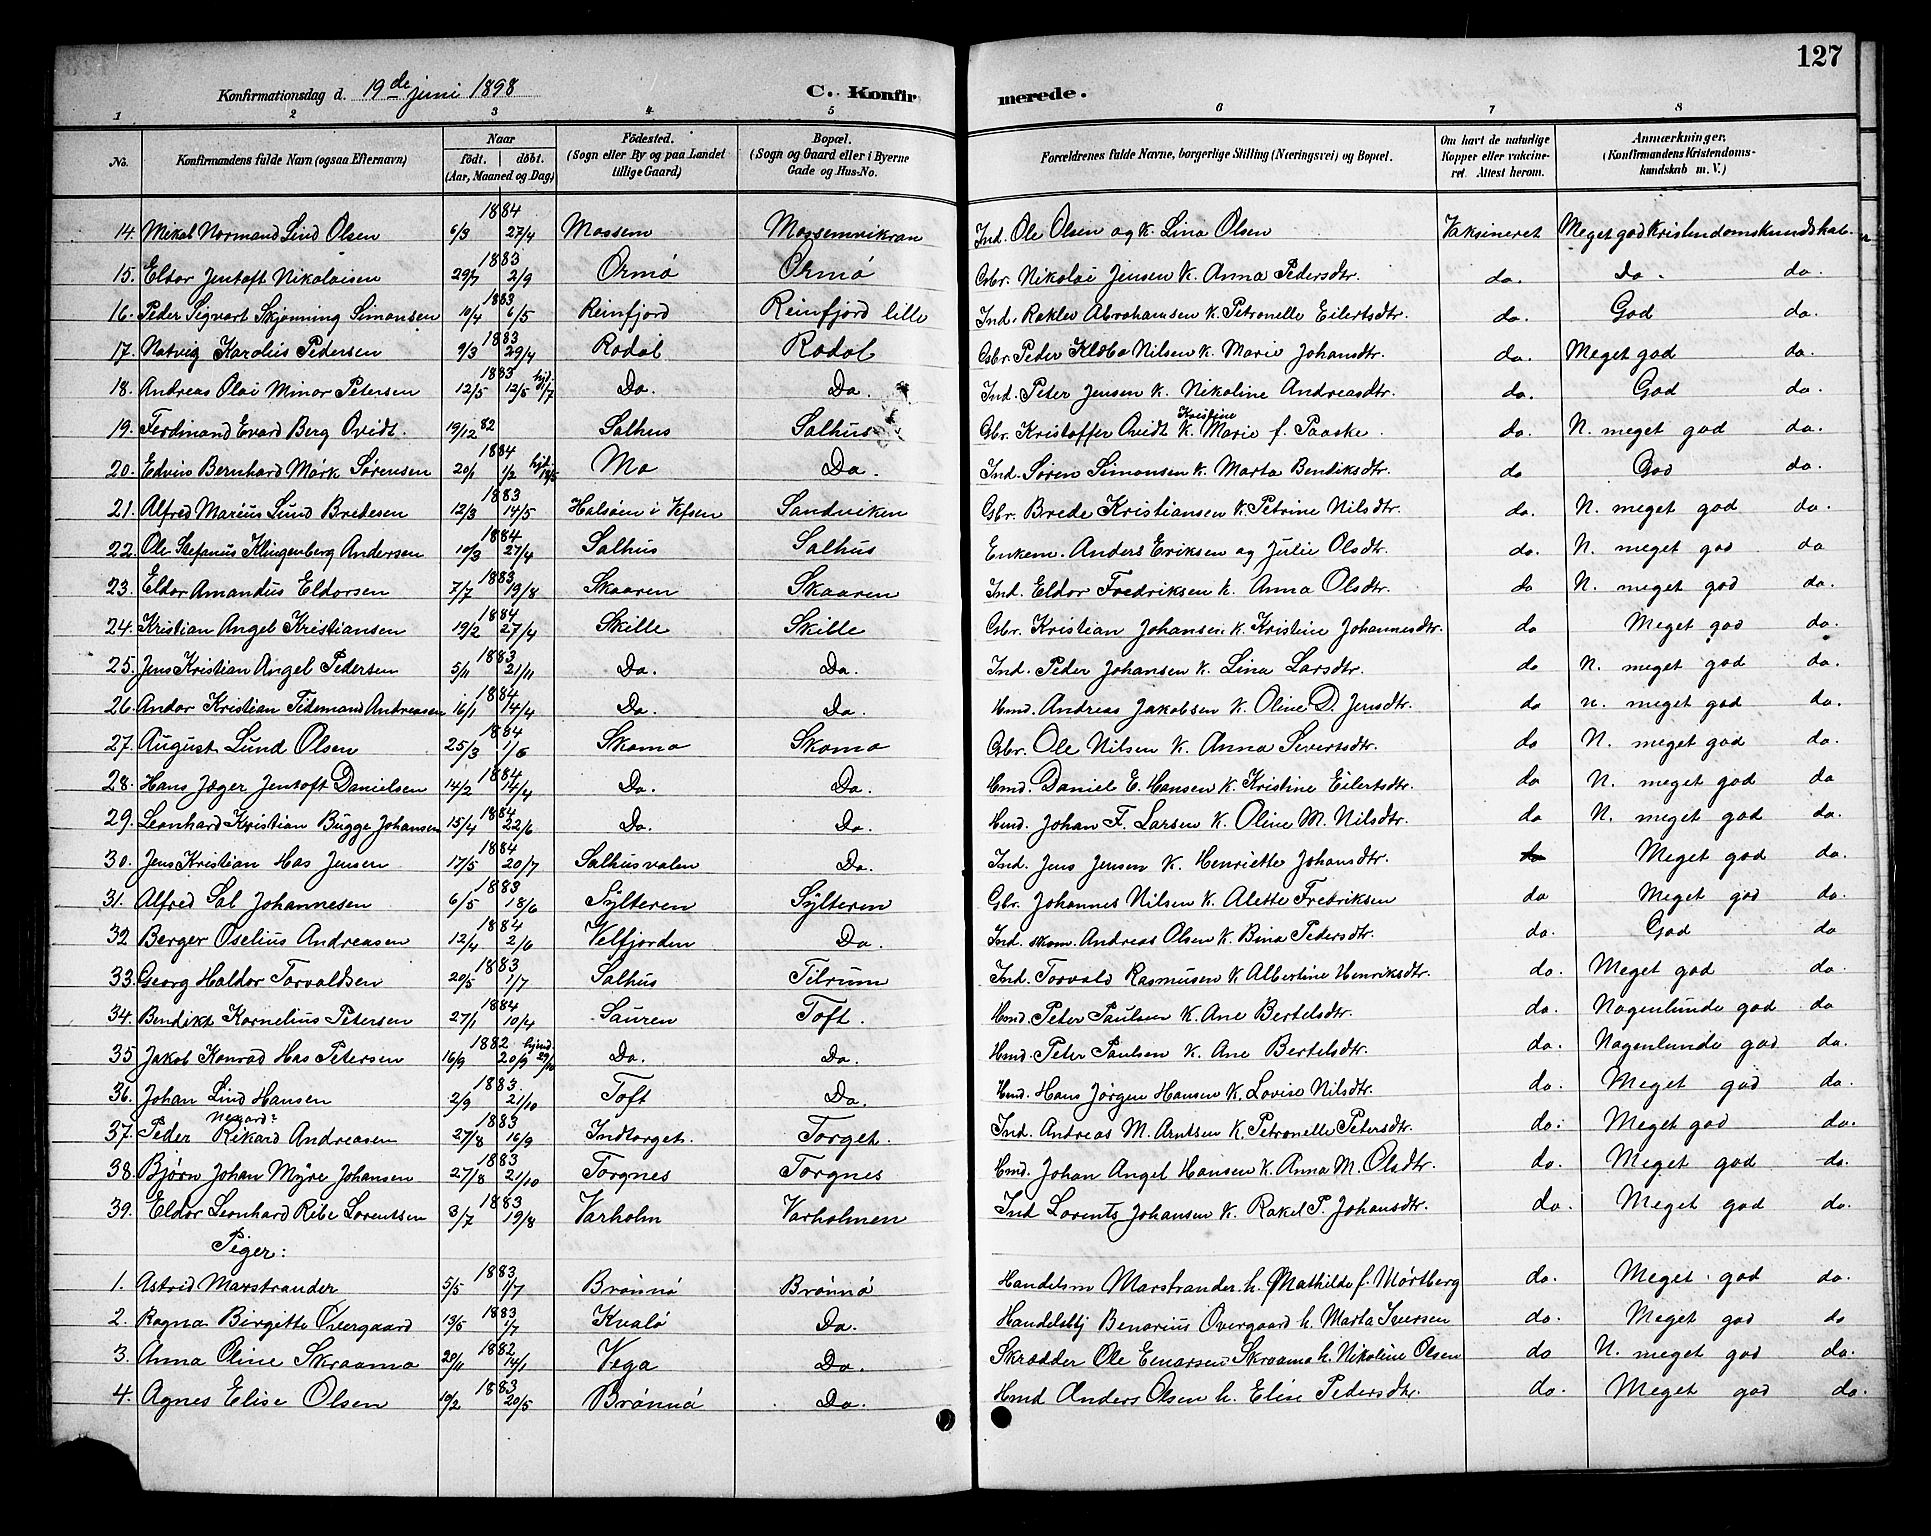 127
Konfirmationsdag d. 19de juni 1898 C. Konfirmerede.
1 2 3 4 5 6 7 8
No. Konfirmandens fulde Navn (ogsaa Efternavn) Naar født. døbt. (Aar, Maaned og Dag) Fødested. (Sogn eller By og paa Landet tillige Gaard) Bopæl. (Sogn og Gaard eller i Byerne Gade og Hus-No. Forældrenes fulde Navne, borgerlige Stilling (Næringsvei) og Bopæl. Om havt de naturlige Kopper eller vakcineret. Attest herom. Anmærkninger. (Konfirmandens Kristendomskundskab m. V.)
14. Mikal Normand Lind Olsen 6/3 1884 27/4 Mossem Mossemvikran Ind. Ole Olsen og k. Lina Olsen Vaksineret Meget god Kristendomskundskab.
15. Eldor Jentoft Nikolaisen 29/7 1883 2/9 Ormø Ormø Gbr. Nikolai Jensen k. Anna Pedersdtr. do. Do. do.
16. Peder Sigvart Skjønning Simonsen 10/4 1883 6/5 Reinfjord Reinfjord lille Ind. Rakler Abrahamsen k. Petronelle Eilertsdtr. do. God do.
17. Natvig Karolius Pedersen 9/3 1883 29/4 Rodøl Rodøl Gbr. Peder Klæbo Nilsen k. Marie Johansdtr. do. Meget god do.
18. Andreas Olai Minor Petersen 12/5 1883 12/5 Do. Do. Ind. Peter Jensen k. Nikoline Andreasdtr. do. God do.
19. Ferdinand Evard Berg Ovidt. 19/12 82 Salhus Salhus Gbr. Kristoffer Ovidt k. Kristine Marie f. Paaske. do. N. meget god do.
20. Edvin Bernhard Mørk Sørensen 20/1 1884 1/2 Mo Do. Ind. Søren Simonsen k. Marta Bendiksdtr. do God do.
21. Alfred Marius Lund Bredesen 12/3 1883 14/5 Halsøen i Vefsen Sandviken Gbr. Brede Kristiansen k. Petrine Nilsdtr. do. N. meget god do.
22. Ole Stefanus Klingenberg Andersen 10/3 1884 27/4 Salhus Salhus Enkem. Anders Eriksen og Julie Olsdtr. do. N. meget god do
23. Eldor Amandus Eldorsen 7/7 1883 19/8 Skaaren Skaaren Ind. Eldor Fredriksen k. Anna Olsdtr. do N. meget god do.
24. Kristian Angel Kristiansen 19/2 1884 27/4 Skille Skille Gbr. Kristian Johansen k. Kristine Johannesdtr. do Meget god do.
25. Jens Kristian Angel Pedersen 5/11 1883 21/11 Do. Do. Ind. Peder Johansen k. Lina Larsdtr. do N. meget god do.
26. Andor Kristian Tidemand Andreasen 16/1 1884 14/4 Do. Do. Hmd. Andreas Jakobsen k. Oline D. Jensdtr. do n. meget god do.
27. August Lund Olsen 25/3 1884 1/6 Skomo Skomo Gbr. Ole Nilsen k. Anna Sivertsdtr. do N. meget god do.
28. Hans Jæger Jentoft Danielsen 14/2 1884 14/4 Do. Do. Hmd. Daniel E. Hansen k. Kristine Eilertsdtr. do N. meget god do
29. Leonhard Kristian Bugge Johansen 15/4 1884 22/6 Do. Do. Hmd. Johan F. Larsen k. Oline M. Nilsdtr. do N. meget god do.
30. Jens Kristian Has Jensen 17/5 1884 20/7 Salhusvalen Do. Ind. Jens Jensen k. Henriette Johansdtr. do Meget god do.
31. Alfred Sal Johannesen 6/5 1883 18/6 Sylteren Sylteren Gbr. Johannes Nilsen k. Alette Fredriksen do Meget god do.
32 Berger Oselius Andreasen 12/4 1884 2/6 Velfjorden Do. Ind. skom. Andreas Olsen k. Bina Pedersdtr. do. God do
33. Georg Haldor Torvaldsen 20/5 1883 1/7 Salhus Tilrum Ind. Torvald Rasmusen k. Albertine Henriksdtr. do. Meget god do.
34. Bendikt Kornelius Petersen 27/1 1884 10/4 Sauren Toft. Hmd. Peter Paulsen k. Ane Bertelsdtr. do. Nogenlunde god do
35 Jakob Konrad Has Petersen 16/9 1882 20/9 hjmd 29/10 Do. Do. Hmd. Peter Paulsen k. Ane Bertelsdtr. do. Nogenlunde god do.
36. Johan Lind Hansen 2/9 1883. 21/10 Toft Do. Hmd. Hans Jørgen Hansen k. Lovise Nilsdtr. do. Meget god do.
37. Peder Negard: Rikard Andreasen 27/8 1883 16/9 Indtorget. Torget. Ind. Andreas M. Arntsen k. Petronelle Petersdtr. do. Meget god do.
38. Bjørn Johan Myre Johansen 27/8 1883 21/10 Torgnes Torgnes Hmd. Johan Angel Hansen k. Anna M. Olsdtr. do. Meget god do.
39. Eldor Leonhard Ribe Lorentsen 3/7 1883 19/8 Varholm Varholmen Ind Lorents Johansen k. Rakel P. Johansdtr. do. Meget god do.
Piger:
1. Astrid Marstrander 5/5 1883 1/7 Brønnø Brønnø Handelsm Marstrander. h. Mathilde f. Mørtberg do. Meget god do.
2. Ragna Birgitte Overgaard 13/5 1883 1/7 Kvalø Do. Handelsbtj Benarius Overgaard h. Marta Iversen do. Meget god do
3. Anna Oline Skraamo 20/11 1882 14/1 Vega Do. Skrædder Ole Einarsen Skraamo h. Nikoline Olsen do N. meget god do.
4. Agnes Elise Olsen 10/2 1883 20/5 Brønnø Do. Hmd Anders Olsen h. Elise Pedersdtr. do. Meget god do.